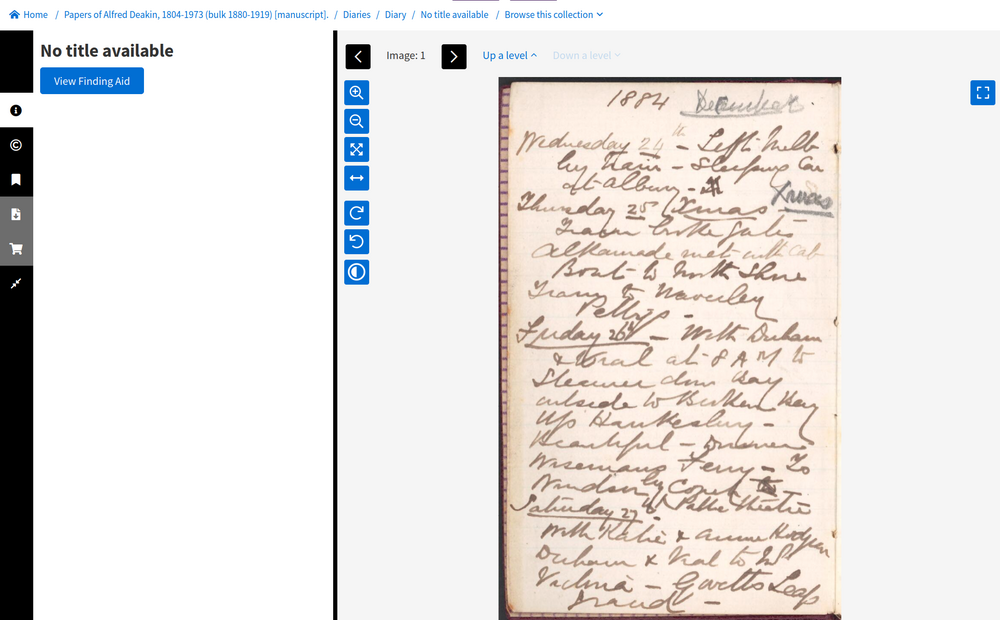 Home / Papers of Alfred Deakin, 1804-1973 (bulk 1880-1919) [manuscript]. / Diaries / Diary / No title available / Browse this collection
No title available
View Finding Aid
Image: 1
Up a level
Down a level
1884 December.
Wednesday 24th - Left Melb
by train - Sleeping Car
at Albury -
Xmas
Thursday 25 (Xmas -
Train broke gates
Alkamade met with cab
Boat to North Shore
Tram to Waverley
Pettys -
Friday 26th - With Durham
& Veal at 8 A M to
Steamer down Bay
outside to Broken Bay
Up Hawkesbury -
Beautiful - Dinner
Wisemans Ferry - To
Windsor by Coach
Saturday 27th Theatre
With Katie & Annie Hodgson
Durham & Veal to Mt
Victoria - Govetts Leap
Grand -